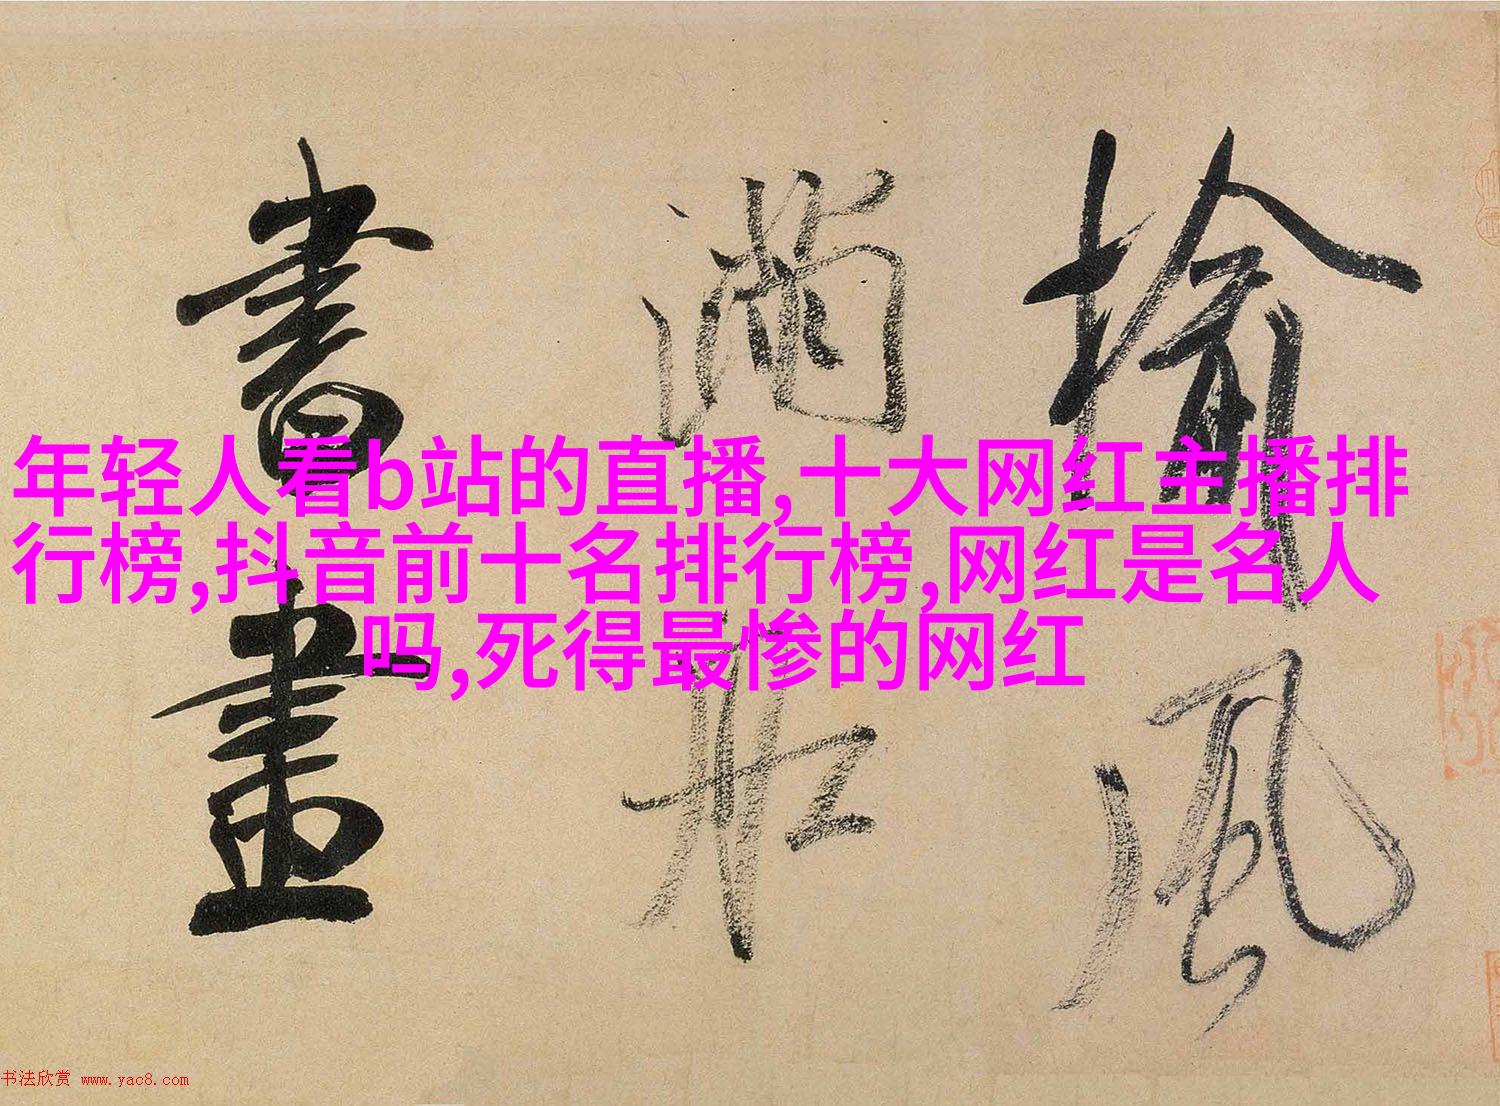 榆風
滿舡
書畫
年轻人看b站的直播,十大网红主播排
行榜,抖音前十名排行榜,网红是名人
吗,死得最惨的网红
书法欣赏 www.yac8.com